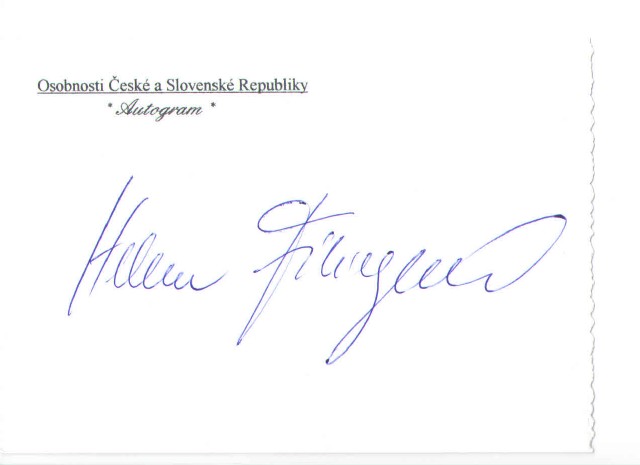 Osobnosti České a Slovenské Republiky
* Autogram *
Helena